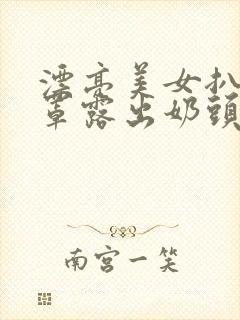 漂亮美女扒
罩露出奶頭
南宫一笑